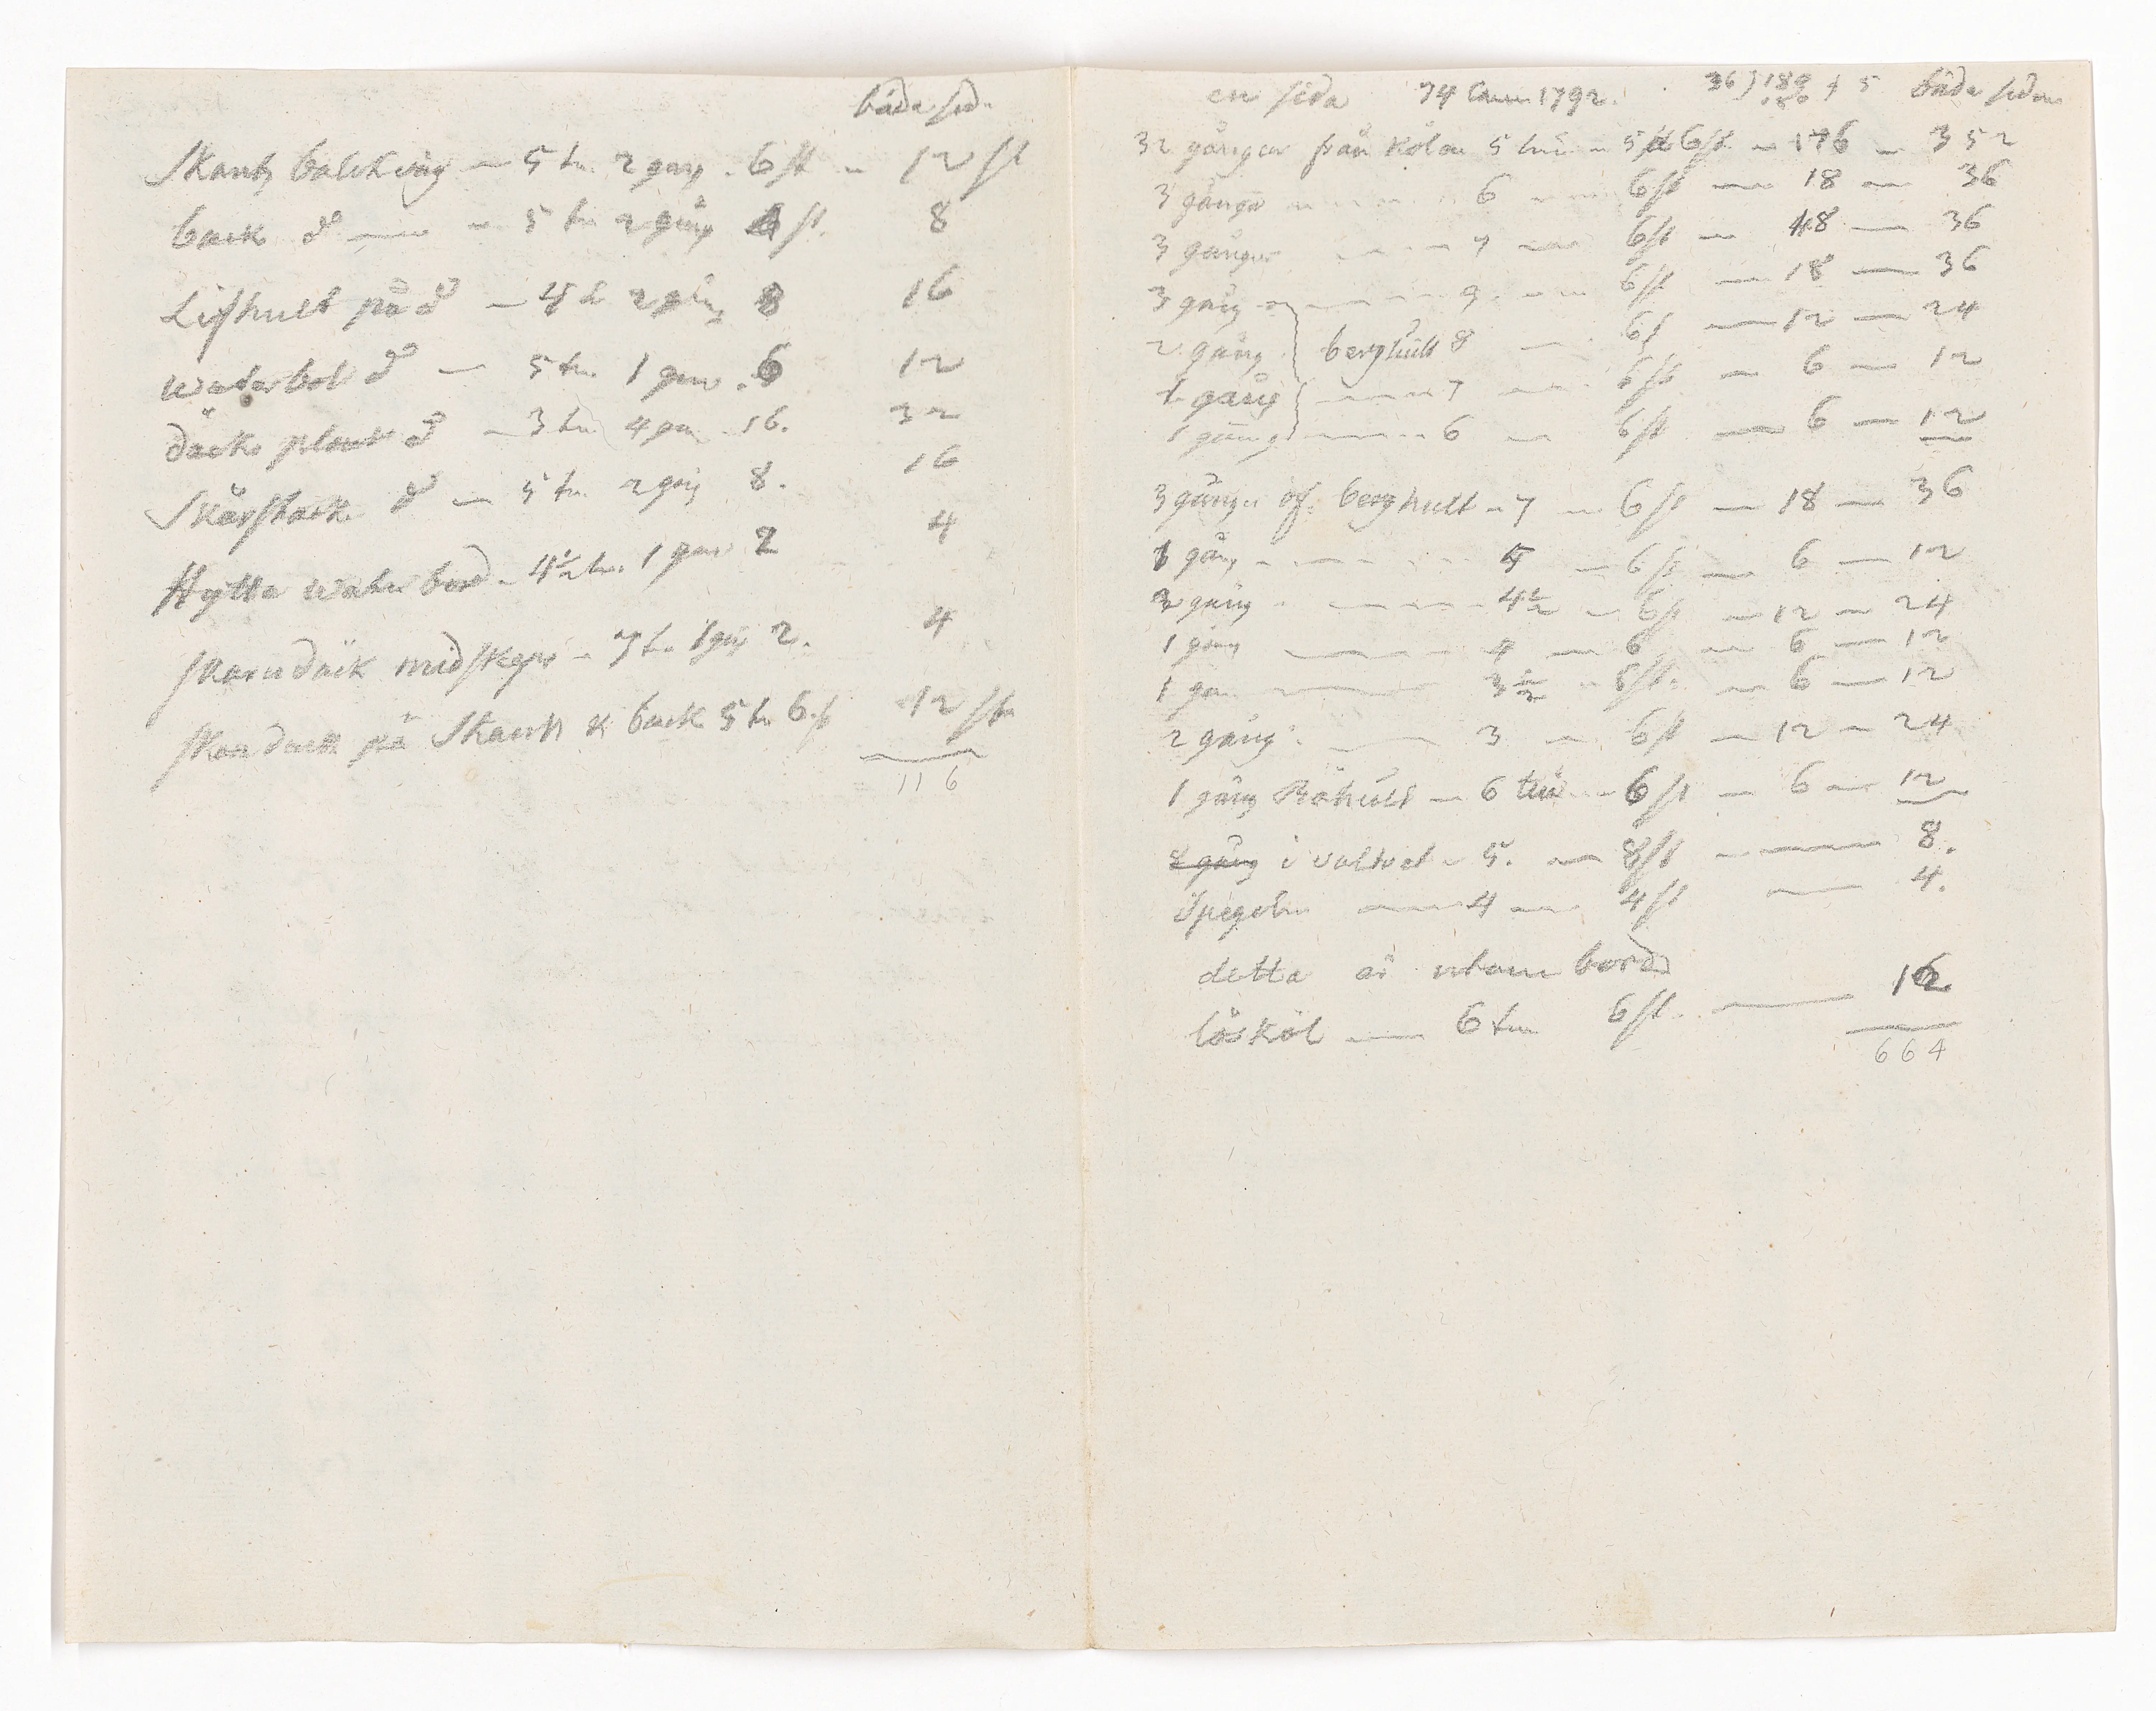 båda sid.
Skantz balckväg — 5 tu. 2 gång. 6 st — 12 st
back do — 5 tu 2 gång 4 st. 8
Lifhult på do — 4 tu 2 gång 8 16
waterbot do — 5 tu. 1 gan. 6 12
däcks plank do — 3 tu 4 gan. 16. 32
Skärstock do — 5 tu. 2 gång 8. 16
Hytta water bord — 4½ tu. 1 gan 2 4
skarndäck midskeps — 7 tu 1 gång 2. 4
skarndäck på Skantz & back 5 tu 6 st 12 st
116
en sida 74 Canon 1792. 36) 189 / 5 båda sidor
180
32 gångar från kölen 5 tum — 5 st 6 st — 176 — 352
3 gångar — 6 — 6 st — 18 — 36
3 gångar — 7 — 6 st — 18 — 36
3 gång — 9 — 6 st — 18 — 36
2 gång berghult 8 — 6 st — 12 — 24
1 gång — 7 — 6 st — 6 — 12
1 gång — 6 — 6 st — 6 — 12
3 gångar öf. berghult — 7 — 6 st — 18 — 36
1 gång — 5 — 6 st — 6 — 12
2 gång — 4½ — 6 st — 12 — 24
1 gång — 4 — 6 — 6 — 12
1 gan. — 3½ — 6 st. — 6 — 12
2 gång — 3 — 6 st — 12 — 24
1 gång Råhult — 6 tum — 6 st — 6 — 12
8 gång i valvet — 5. — 8 st — 8.
Spegeln — 4 — 4 st — 4.
detta är utom bords
löskol — 6 tum 6 st. — 12
664